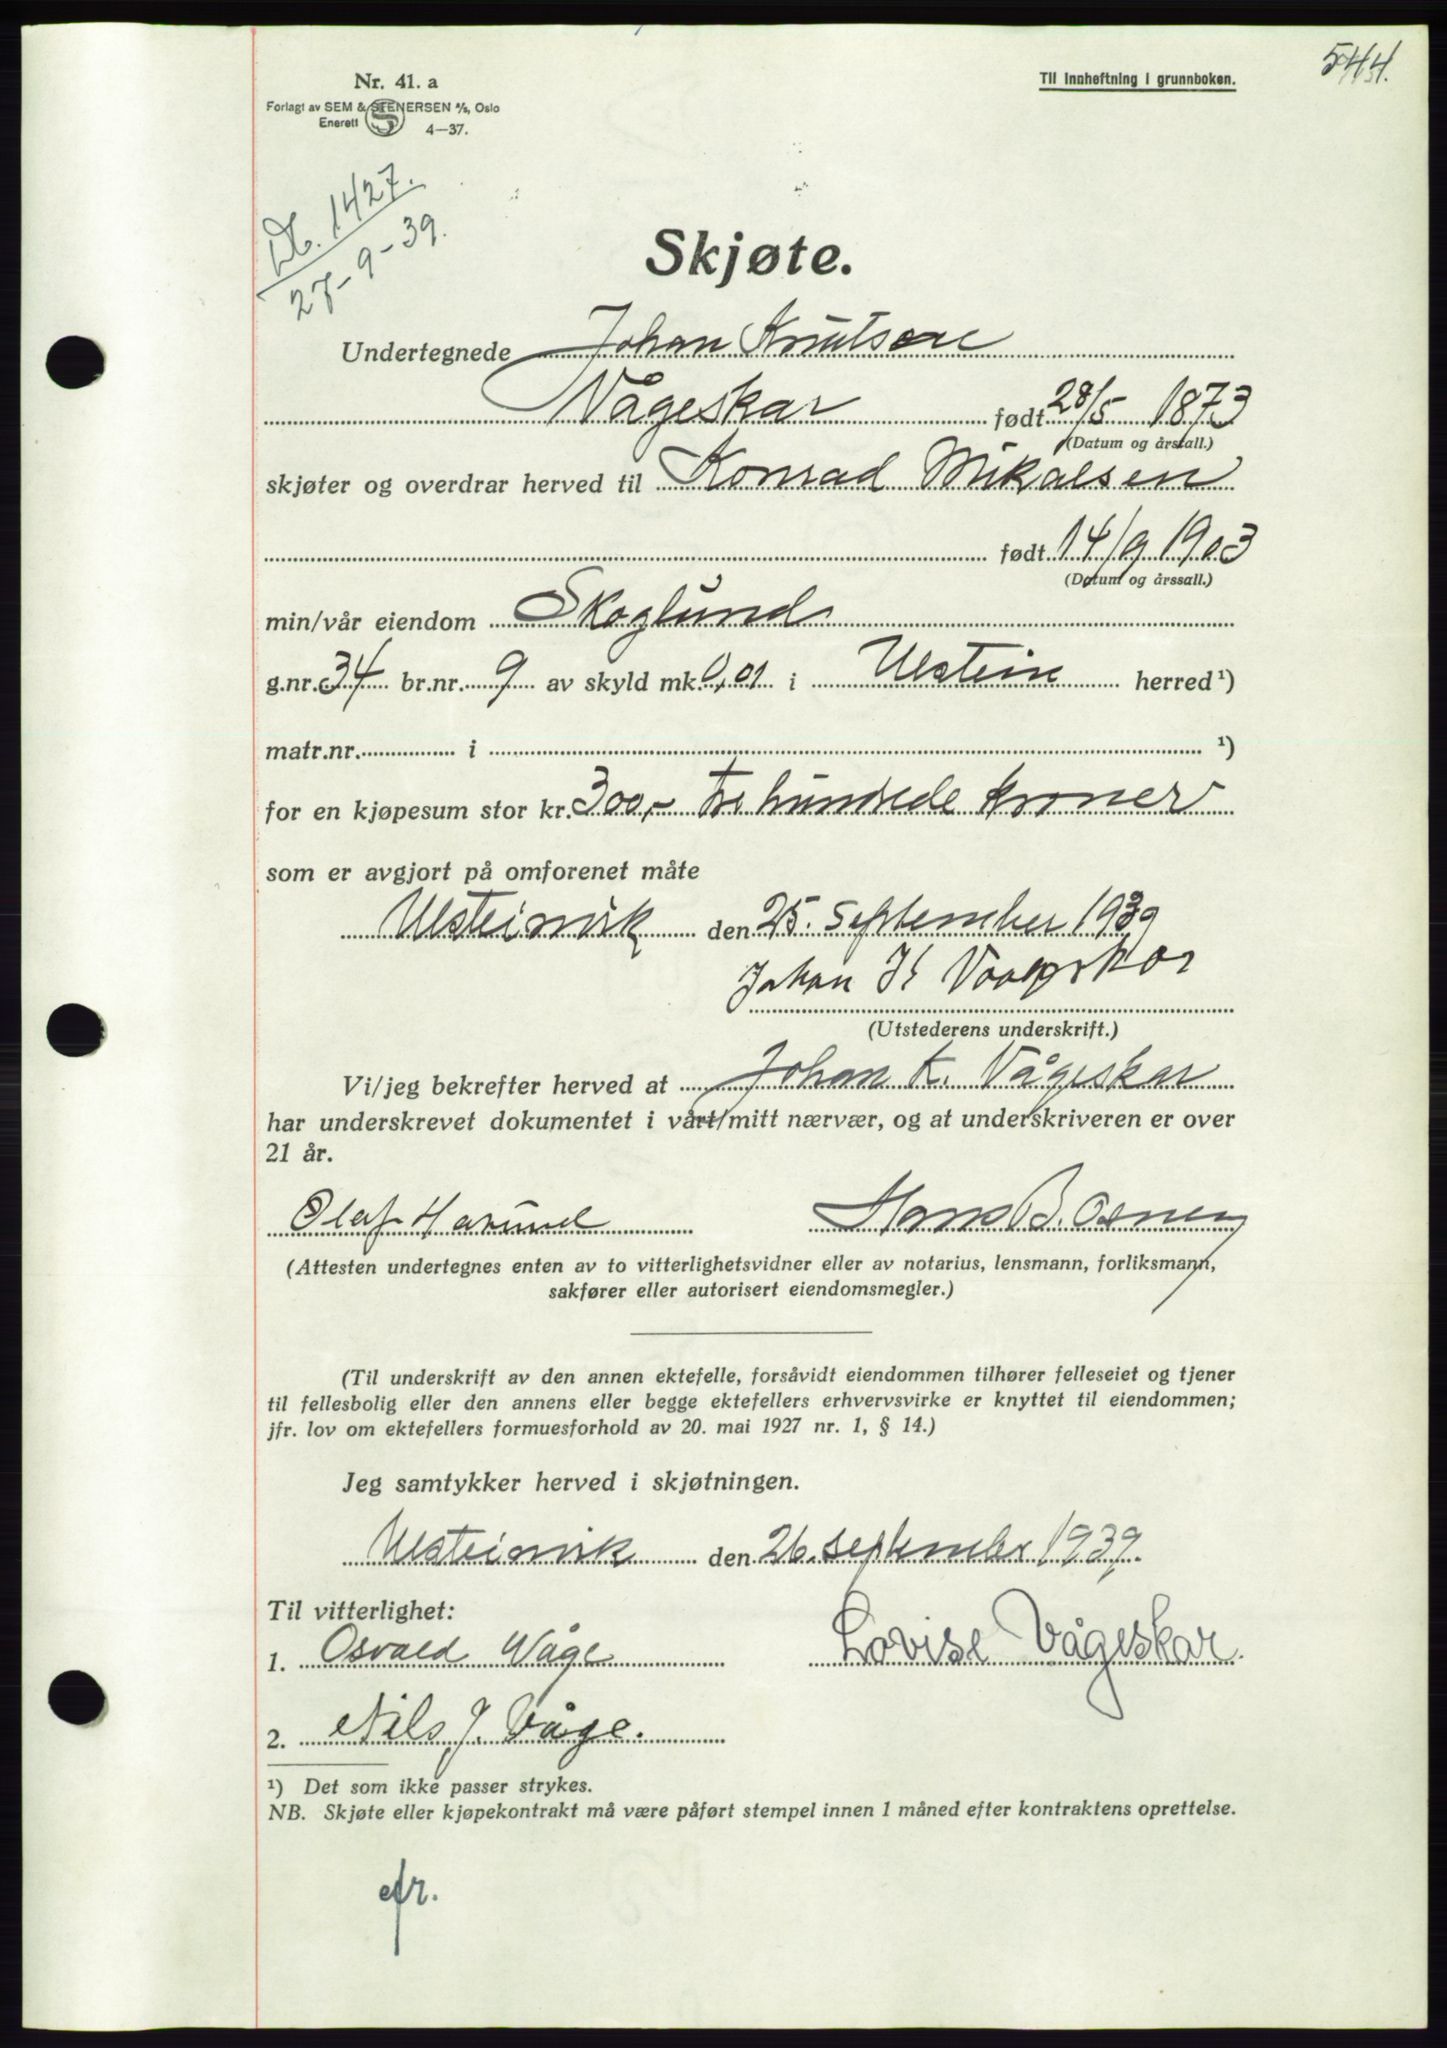 544.
Nr. 41. a
Til innheftning i grunnboken.
Forlagt av SEM & STENERSEN A/S, Oslo
Enerett
4—37.
Db. 1427.
27-9-39.
Skjøte.
Undertegnede Johan Knutsen
Vågeskar født 28/5 1873
(Datum og årstall.)
skjøter og overdrar herved til Konrad Mikalsen
født 14/9 1903
(Datum og årssall.)
min/vår eiendom Skoglund
g.nr. 34 br.nr. 9 av skyld mk. 0,01 i Ulstein herred ¹)
matr.nr. i ¹)
for en kjøpesum stor kr. 300,- tre hundrede kroner
som er avgjort på omforenet måte
Ulsteinvik den 25. september 1939
Johan K Vaageskar
(Utstederens underskrift.)
Vi/jeg bekrefter herved at Johan K. Vågeskar
har underskrevet dokumentet i vårt/mitt nærvær, og at underskriveren er over
21 år.
Olaf Hasund Hans B. Osnes
(Attesten undertegnes enten av to vitterlighetsvidner eller av notarius, lensmann, forliksmann,
sakfører eller autorisert eiendomsmegler.)
(Til underskrift av den annen ektefelle, forsåvidt eiendommen tilhører felleseiet og tjener
til fellesbolig eller den annens eller begge ektefellers erhvervsvirke er knyttet til eiendommen;
jfr. lov om ektefellers formuesforhold av 20. mai 1927 nr. 1, § 14.)
Jeg samtykker herved i skjøtningen.
Ulsteinvik den 26. september 1939.
Til vitterlighet:
1. Osvald Våge Lovise Vågeskar.
2. Nils J. Våge.
¹) Det som ikke passer strykes.
NB. Skjøte eller kjøpekontrakt må være påført stempel innen 1 måned efter kontraktens oprettelse.